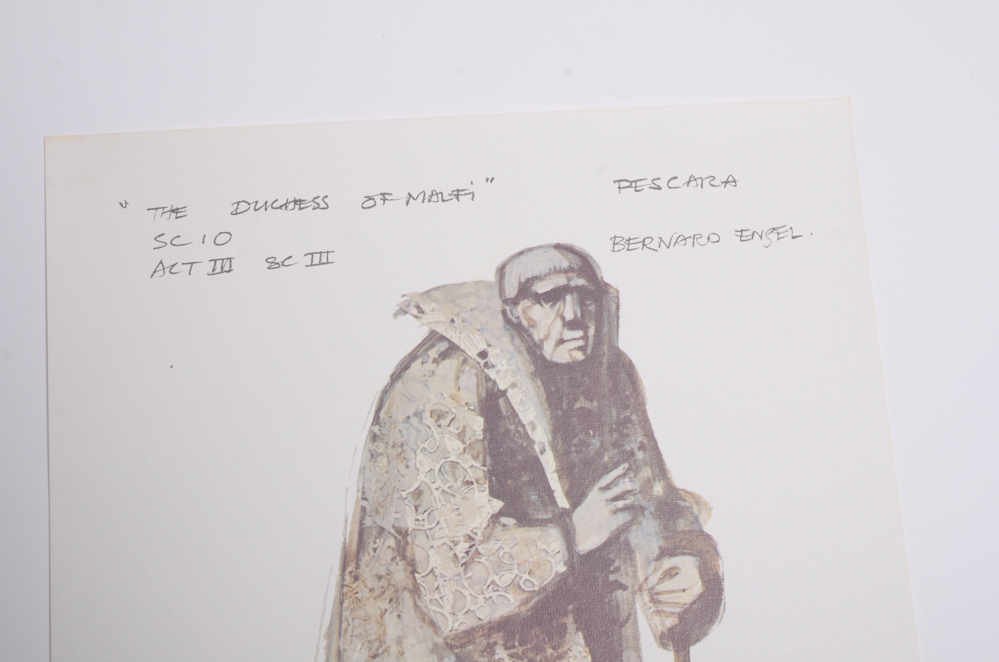 "THE DUCHESS OF MALFI"
SC 10
ACT III SC III
PESCARA
BERNARD ENGEL.